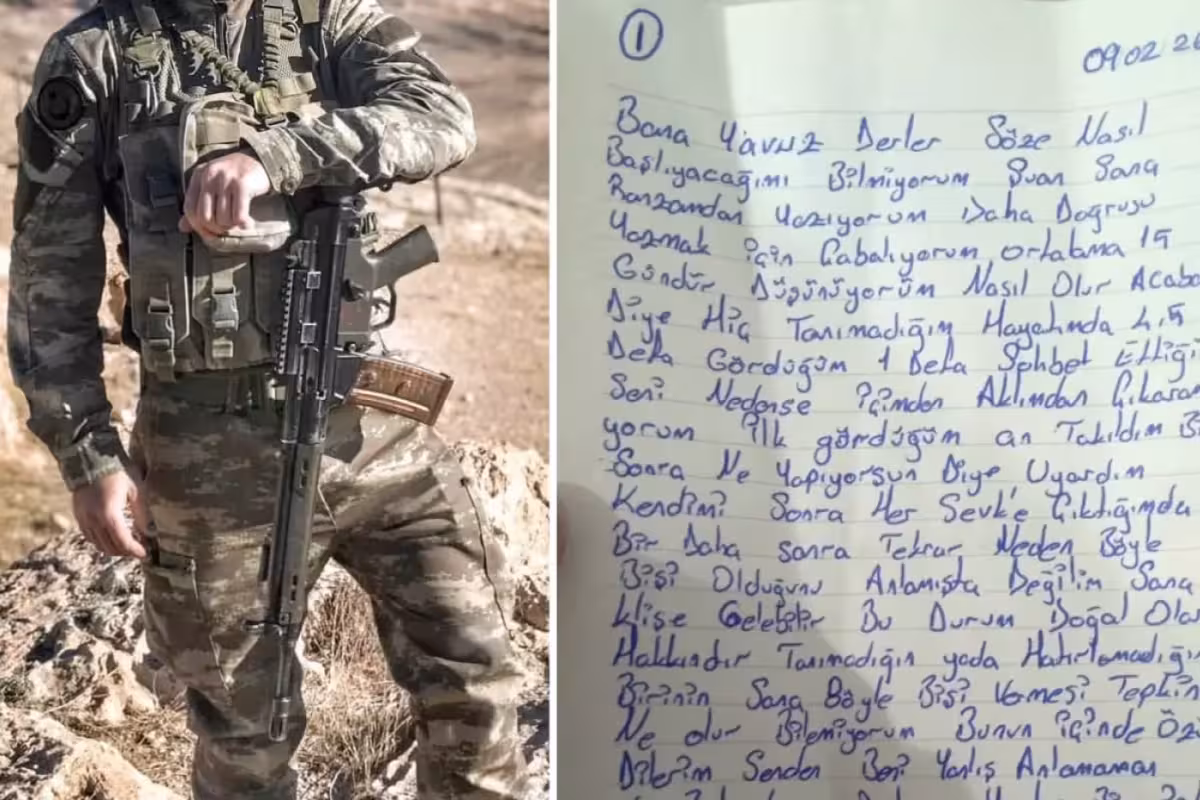 1
09.02.26
Bana Yavuz Derler Söze Nasıl
Başlıyacağımı Bilmiyorum Şuan Sana
Ranzamdan Yazıyorum Daha Doğrusu
Yazmak için Çabalıyorum ortalama 15
Gündür Düşünüyorum Nasıl Olur Acaba
Diye Hiç Tanımadığım Hayatımda 4,5
Defa Gördüğüm 1 Defa Sohbet Ettiği
Seni Nedense içimden Aklımdan Çıkaram
yorum ilk gördüğüm an Takıldım Bi
Sonra Ne Yapıyorsun Diye Uyardım
Kendimi Sonra Her Sevk'e Çıktığımda
Bir Daha sonra Tekrar Neden Böyle
Bişi Olduğunu Anlamışta Değilim Sana
Klişe Gelebilir Bu Durum Doğal Ola
Hakkındır Tanımadığın yada Hatırlamadığın
Birinin Sana Böyle Bişi Vermesi Tepkin
Ne olur Bilemiyorum Bunun içinde Öz
Dilerim Senden Beni Yanlış Anlamaman